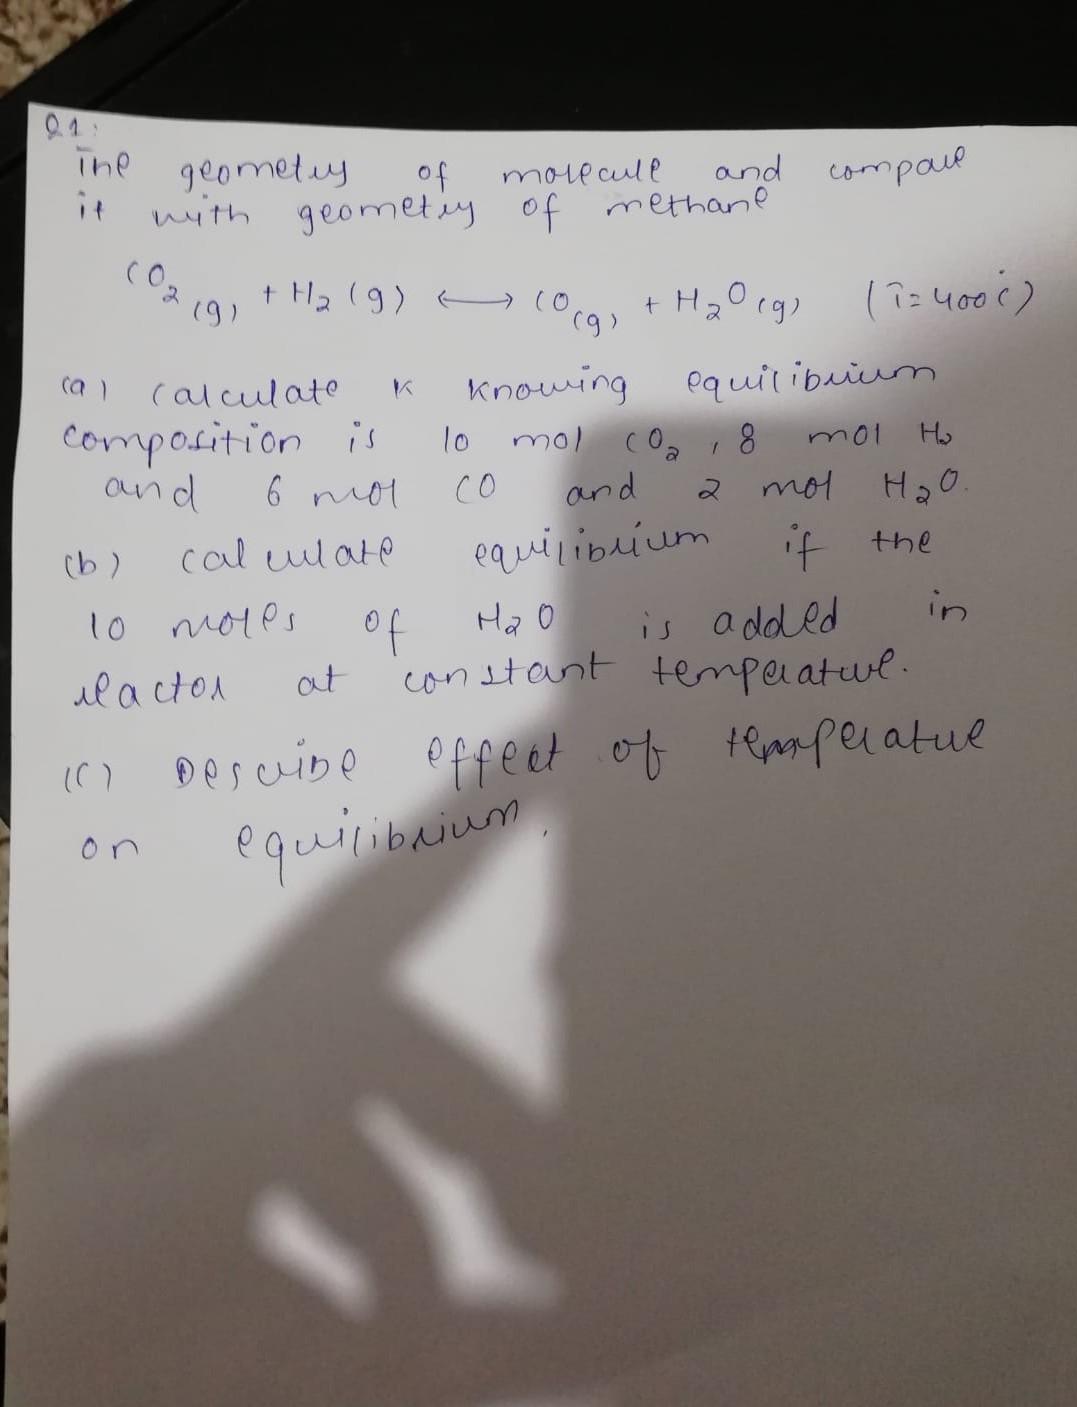 Q1:
The geometry of molecule and compare
it with geometry of methane
CO2(g) + H2(g) ⟷ CO(g) + H2O(g) (T=400C)
(a) calculate K knowing equilibrium
composition is 10 mol CO2, 8 mol H2
and 6 mol CO and 2 mol H2O.
(b) calculate equilibrium if the
10 moles of H2O is added in
reactor at constant temperature.
(c) Describe effect of temperature
on equilibrium.